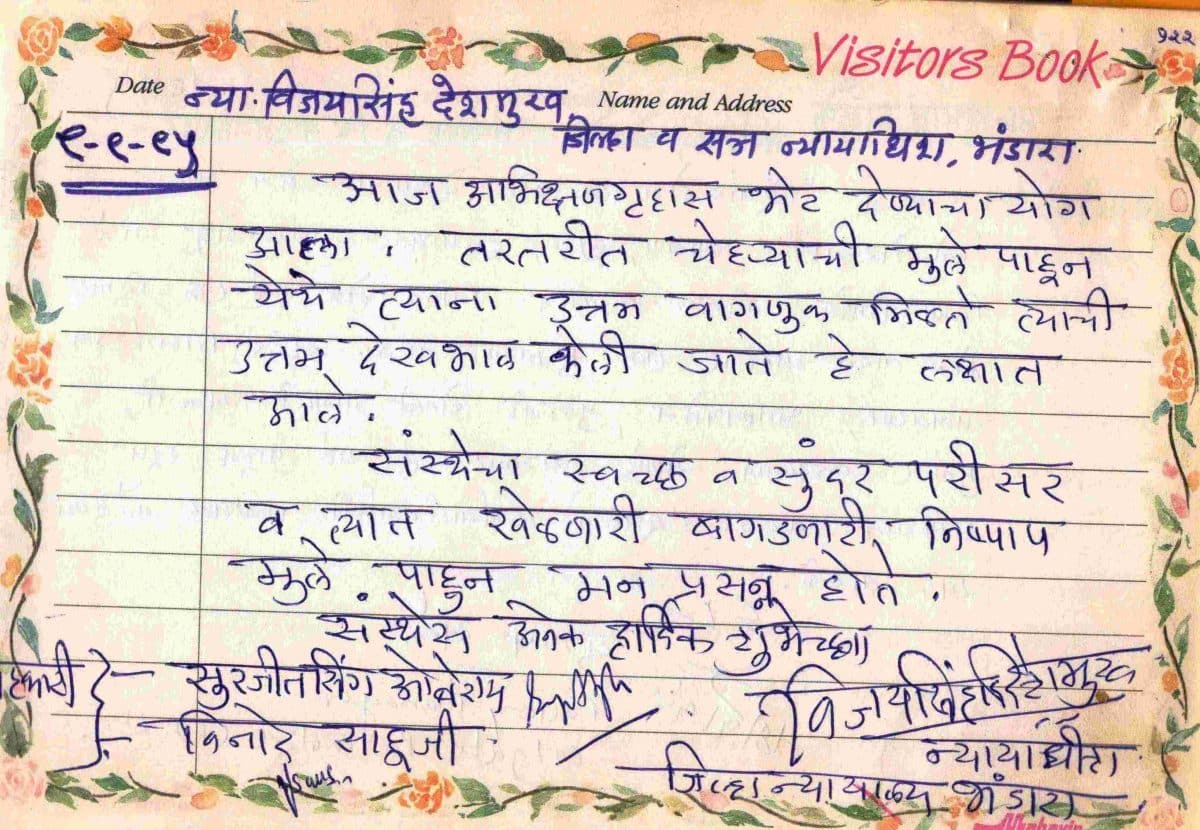 १२२
Visitors Book
Date न्या. विजयसिंह देशमुख Name and Address
९-९-९५ जिल्हा व सत्र न्यायाधिश, भंडारा.
आज अभिक्षणगृहास भेट देण्याचा योग
आला. तरतरीत चेहऱ्याची मुले पाहून
येथे त्याना उत्तम वागणुक मिळते त्याची
उत्तम देखभाल केली जाते हे लक्षात
आले.
संस्थेचा स्वच्छ व सुंदर परीसर
व त्यात खेळणारी बागडनारी, निष्पाप
मुले पाहुन मन प्रसन्न होते.
संस्थेस अनेक हार्दिक शुभेच्छा
सुरजीतसिंग ओबेराय विजयसिंह देशमुख
विनोद साहूजी न्यायाधीश
जिल्हा न्यायालय भंडारा